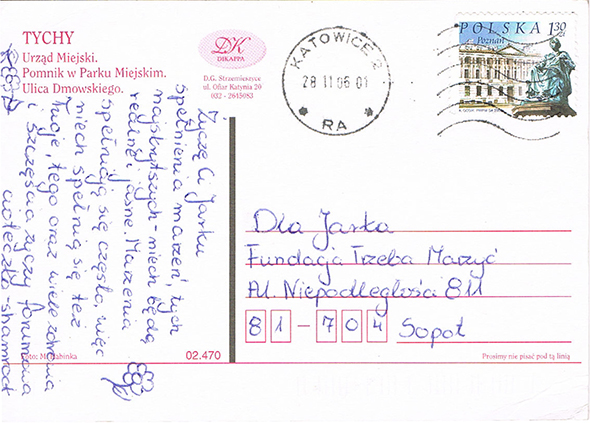 TYCHY
Urząd Miejski.
Pomnik w Parku Miejskim.
Ulica Dmowskiego.
DK
DIKAPPA
D.G. Strzemieszyce
ul. Ofiar Katynia 20
032 - 2615083
KATOWICE 2
28 11 06 01
RA
POLSKA 1,30 zł
Poznań
Życzę Ci Jarku
spełnienia marzeń, tych
najskrytszych - niech będą
realne i jasne. Marzenia
spełniają się często, więc
niech spełnią się też
Twoje, tego oraz wiele zdrowia
i szczęścia życzy forumowa
cioteczka - shamrock
Dla Jarka
Fundacja Trzeba Marzyć
Al. Niepodległości 811
81-704 Sopot
02.470
Prosimy nie pisać pod tą linią